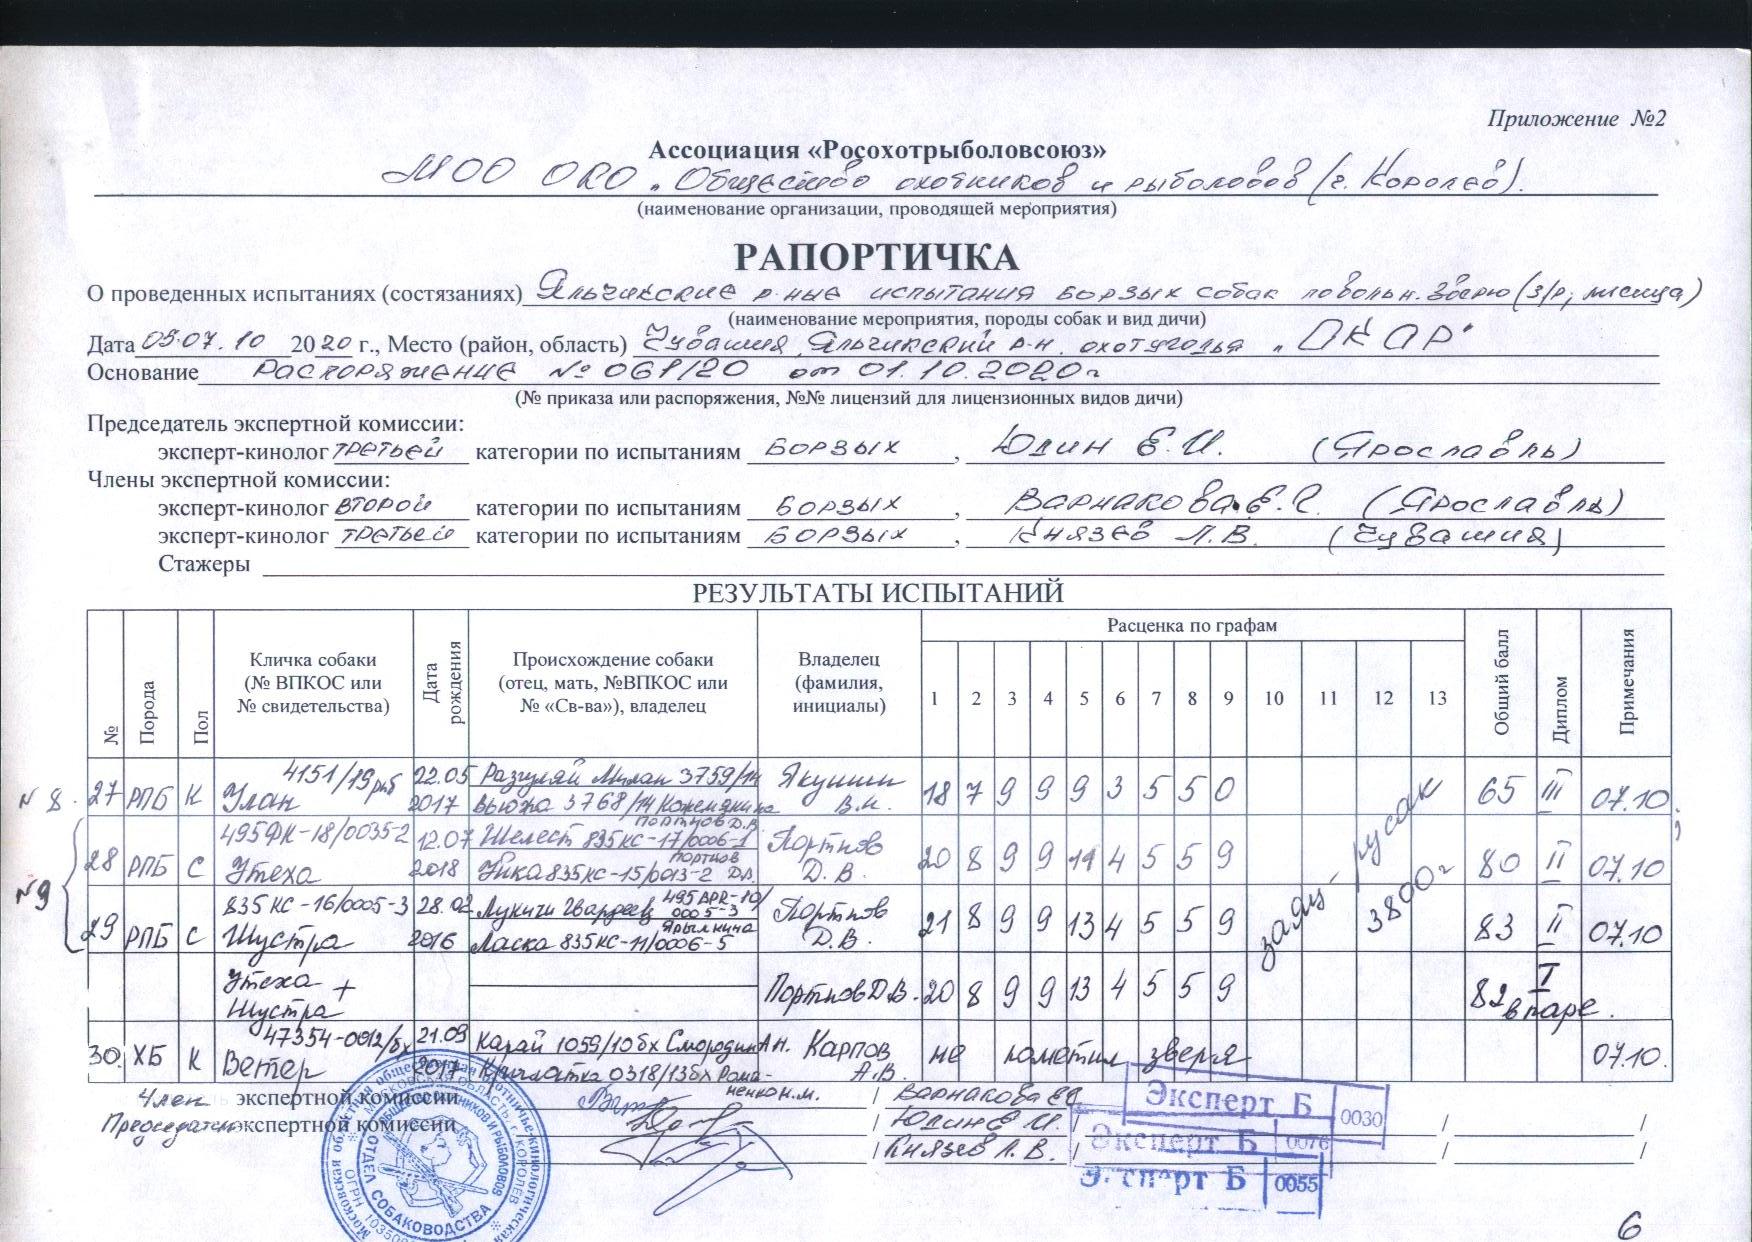 Приложение №2
Ассоциация «Росохотрыболовсоюз»
МОО ОКО "Общество охотников и рыболовов (г. Королёв).
(наименование организации, проводящей мероприятия)
РАПОРТИЧКА
О проведенных испытаниях (состязаниях) Яльчикские р-ные испытания борзых собак по вольн. зверю (з/р, лисица)
(наименование мероприятия, породы собак и вид дичи)
Дата 05-07.10 2020 г., Место (район, область) Чувашия, Яльчикский р-н, охотугодья "ОКАР"
Основание Распоряжение № 061/20 от 01.10.2020г
(№ приказа или распоряжения, №№ лицензий для лицензионных видов дичи)
Председатель экспертной комиссии:
эксперт-кинолог третьей категории по испытаниям борзых, Юдин Е.И. (Ярославль)
Члены экспертной комиссии:
эксперт-кинолог второй категории по испытаниям борзых, Варнакова Е.С. (Ярославль)
эксперт-кинолог третьей категории по испытаниям борзых, Князев Л.В. (Чувашия)
Стажеры
РЕЗУЛЬТАТЫ ИСПЫТАНИЙ
№ Порода Пол Кличка собаки (№ ВПКОС или № свидетельства) Дата рождения Происхождение собаки (отец, мать, №ВПКОС или № «Св-ва»), владелец Владелец (фамилия, инициалы) Расценка по графам Общий балл Диплом Примечания
1 2 3 4 5 6 7 8 9 10 11 12 13
№ 8. 27 РПБ К 4151/19рпб Улан 22.05 2017 Разгуляй Милан 3759/14 Вьюжа 3768/14 Кожемякина Якушин В.Н. 18 7 9 9 9 3 5 5 0 65 III 07.10
№9 28 РПБ С 495ФК-18/0035-2 Утеха 12.07 2018 Шелест 835КС-17/0006-1 Портнов Д.В. Уика 835КС-15/0013-2 Портнов Д.В. Портнов Д.В. 20 8 9 9 11 4 5 5 9 80 II 07.10
29 РПБ С 835КС-16/0005-3 Шустра 28.02 2016 Лукичи Гвардеец 495АРR-10/0005-3 Ласка 835КС-11/0006-5 Ярылкина Портнов Д.В. 21 8 9 9 13 4 5 5 9 83 II 07.10
заяц-русак 3800г
Утеха + Шустра Портнов Д.В. 20 8 9 9 13 4 5 5 9 82 I в паре.
30. ХБ К 47354-0012/бх Ветер 21.09 2017 Карай 1059/10бх Смородин А.Н. Крылатка 0318/13бх Романенко Н.М. Карпов А.В. не пометил зверя 07.10.
Член экспертной комиссии / Варнакова ЕС
Председатель экспертной комиссии / Юдин Е И. /
/ Князев Л. В. /
Эксперт Б 0030
Эксперт Б 0076
Эксперт Б 0055
ОТДЕЛ СОБАКОВОДСТВА
6